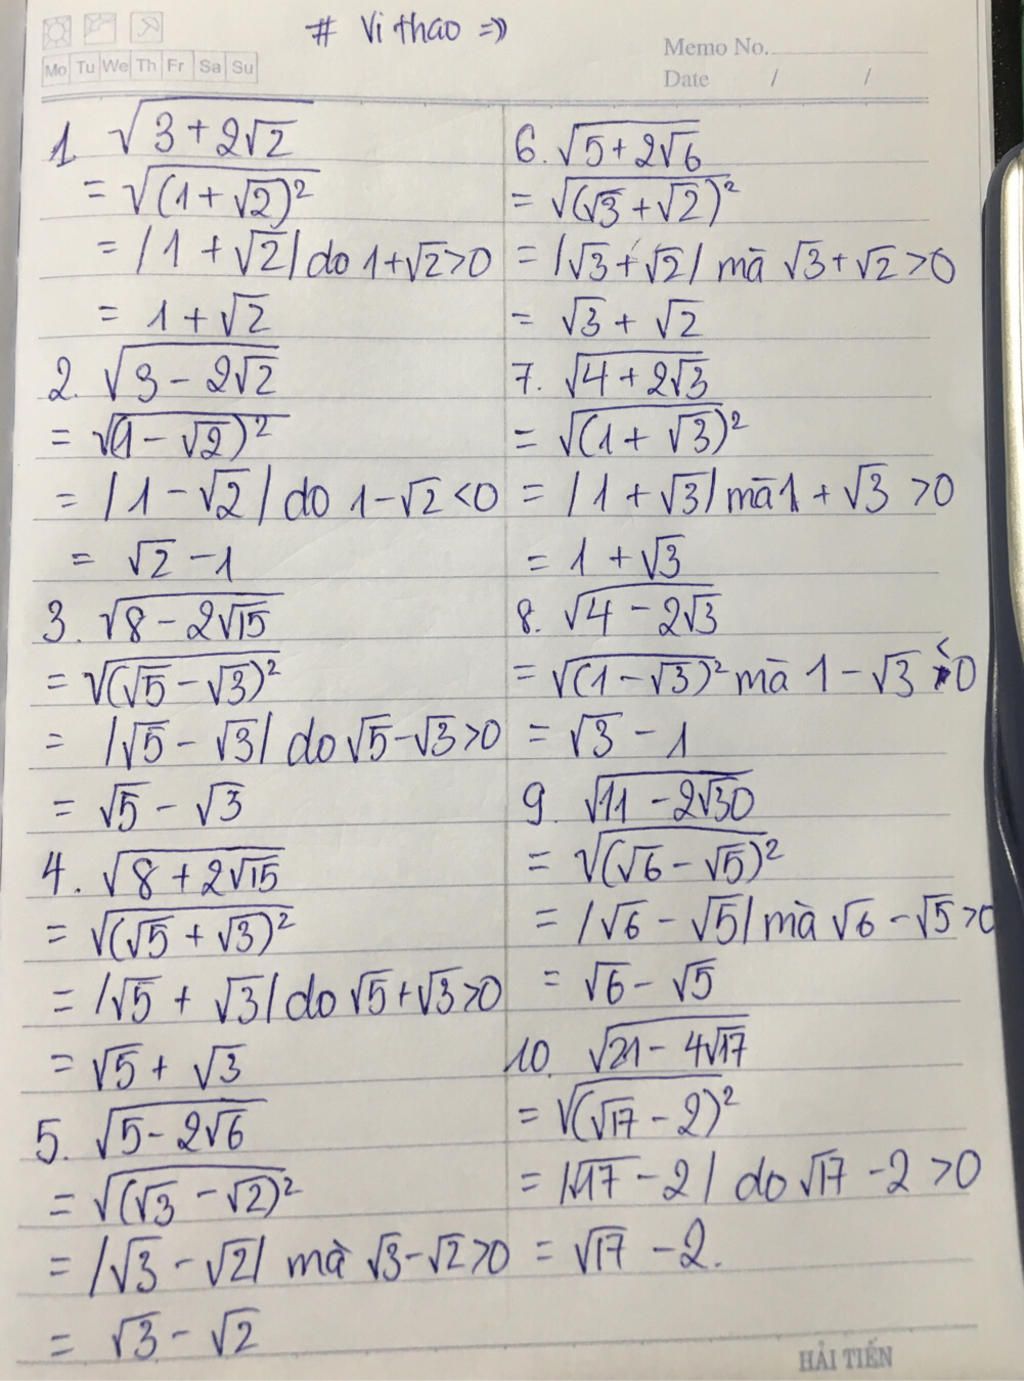 # Vi thao =))
Memo No.
Mo Tu We Th Fr Sa Su
Date / /
1. √(3 + 2√2)
= √((1 + √2)²)
= |1 + √2| do 1+√2>0
= 1 + √2
2. √(3 - 2√2)
= √((1 - √2)²)
= |1 - √2| do 1-√2<0
= √2 - 1
3. √(8 - 2√15)
= √((√5 - √3)²)
= |√5 - √3| do √5-√3>0
= √5 - √3
4. √(8 + 2√15)
= √((√5 + √3)²)
= |√5 + √3| do √5+√3>0
= √5 + √3
5. √(5 - 2√6)
= √((√3 - √2)²)
= |√3 - √2| mà √3-√2>0
= √3 - √2
6. √(5 + 2√6)
= √((√3 + √2)²)
= |√3 + √2| mà √3 + √2 >0
= √3 + √2
7. √(4 + 2√3)
= √((1 + √3)²)
= |1 + √3| mà 1 + √3 >0
= 1 + √3
8. √(4 - 2√3)
= √((1 - √3)²) mà 1 - √3 <0
= √3 - 1
9. √(11 - 2√30)
= √((√6 - √5)²)
= |√6 - √5| mà √6 - √5 >0
= √6 - √5
10. √(21 - 4√17)
= √((√17 - 2)²)
= |√17 - 2| do √17 - 2 >0
= √17 - 2.
HẢI TIẾN